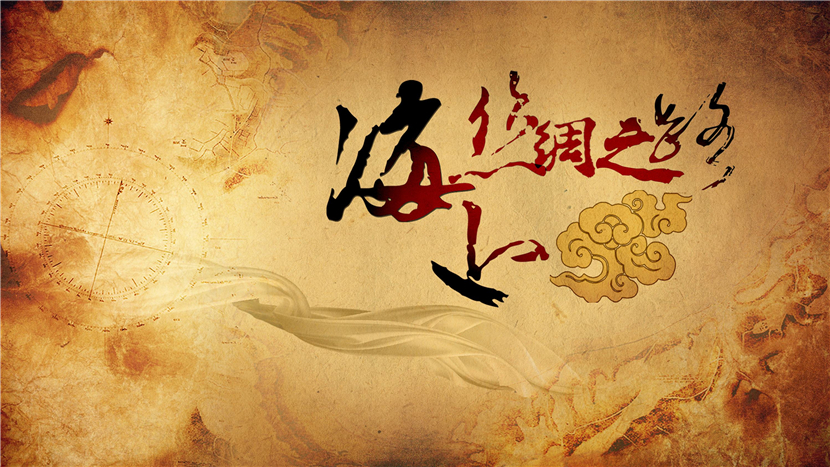 海上丝绸之路